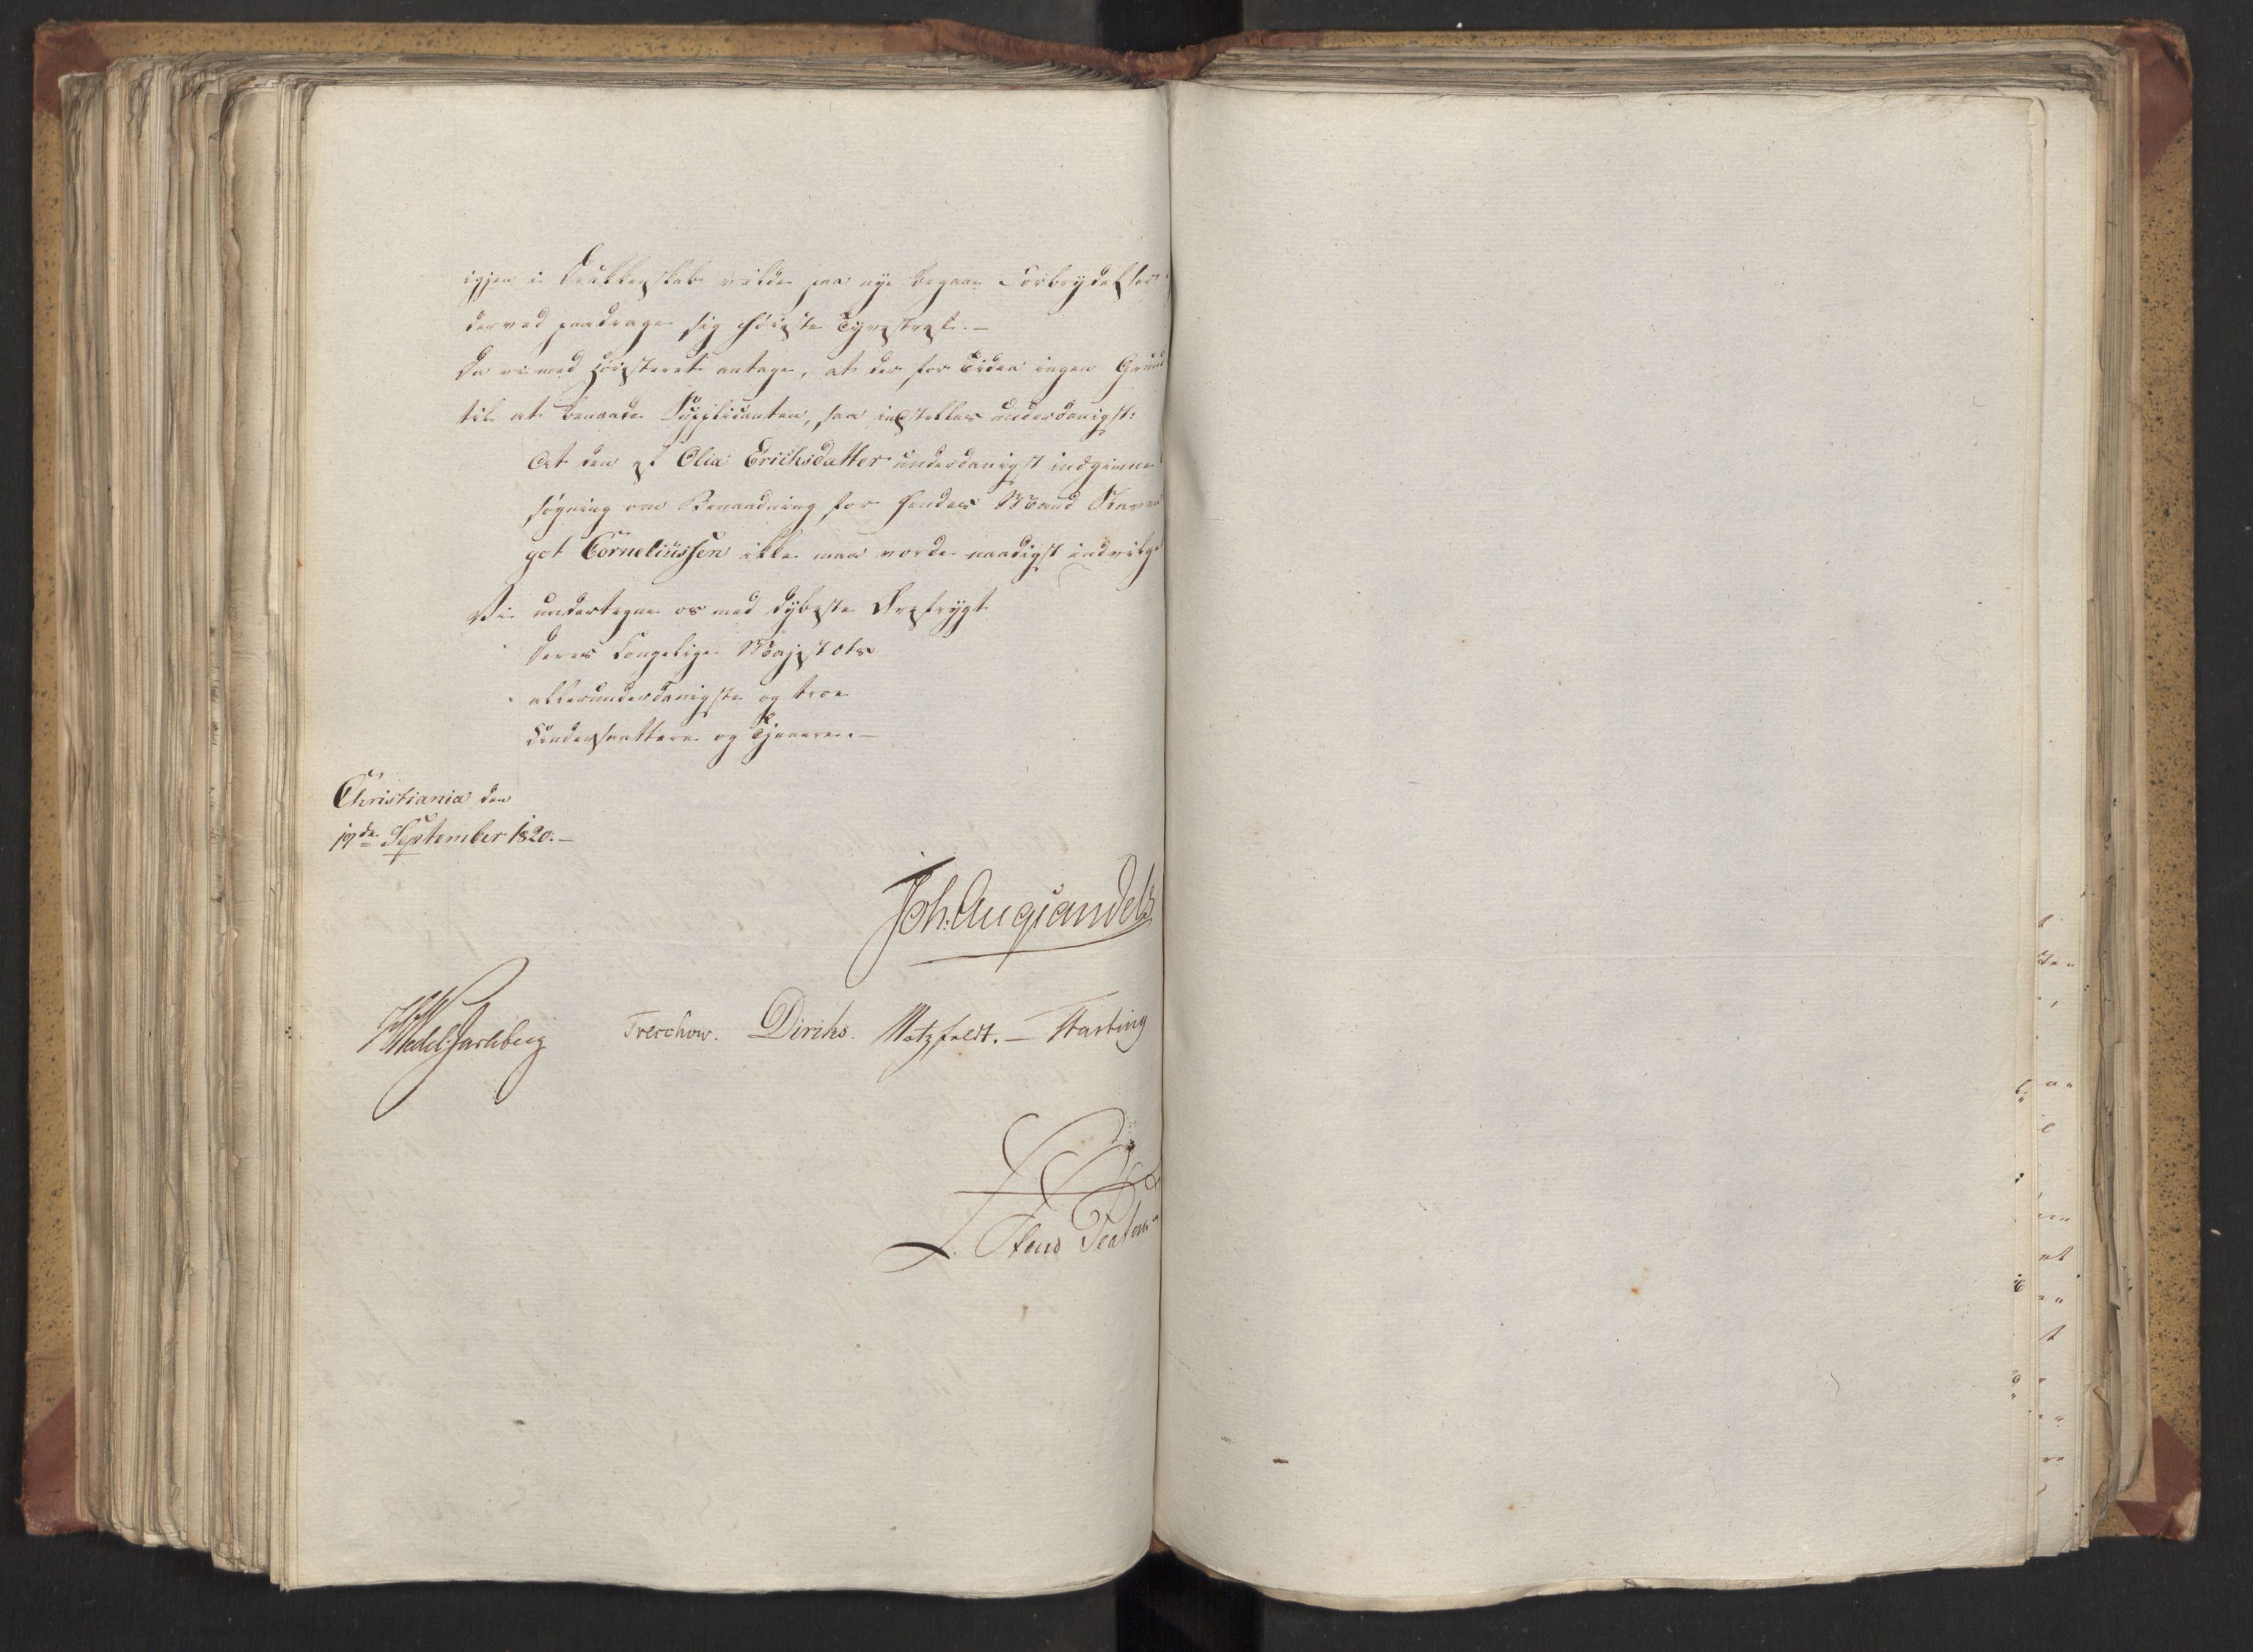 igjen i Drukkenskab vilde paa nye begaae Forbrydelser
derved paadrage sig høieste Tyvsstraf. —
Da vi med Høiesteret antage, at der for Tiden ingen Grund
til at benaade Supplicanten, saa indstilles underdanigst:
At den af Olia Erichsdatter underdanigst indgivne
søgning om Benaadning for hendes Mand
Corneliussen ikke maa vorde naadigst indvilget
Vi undertegne os med dybeste Ærefrygt
Deres Kongelige Majestæts
allerunderdanigste og troe
Undersaattere og Tjenere. —
Christiania den
17de September 1820. —
Joh. Aug: Sandels
HWedel Jarlsberg Treschow. Diriks. Motzfeldt. — Fasting